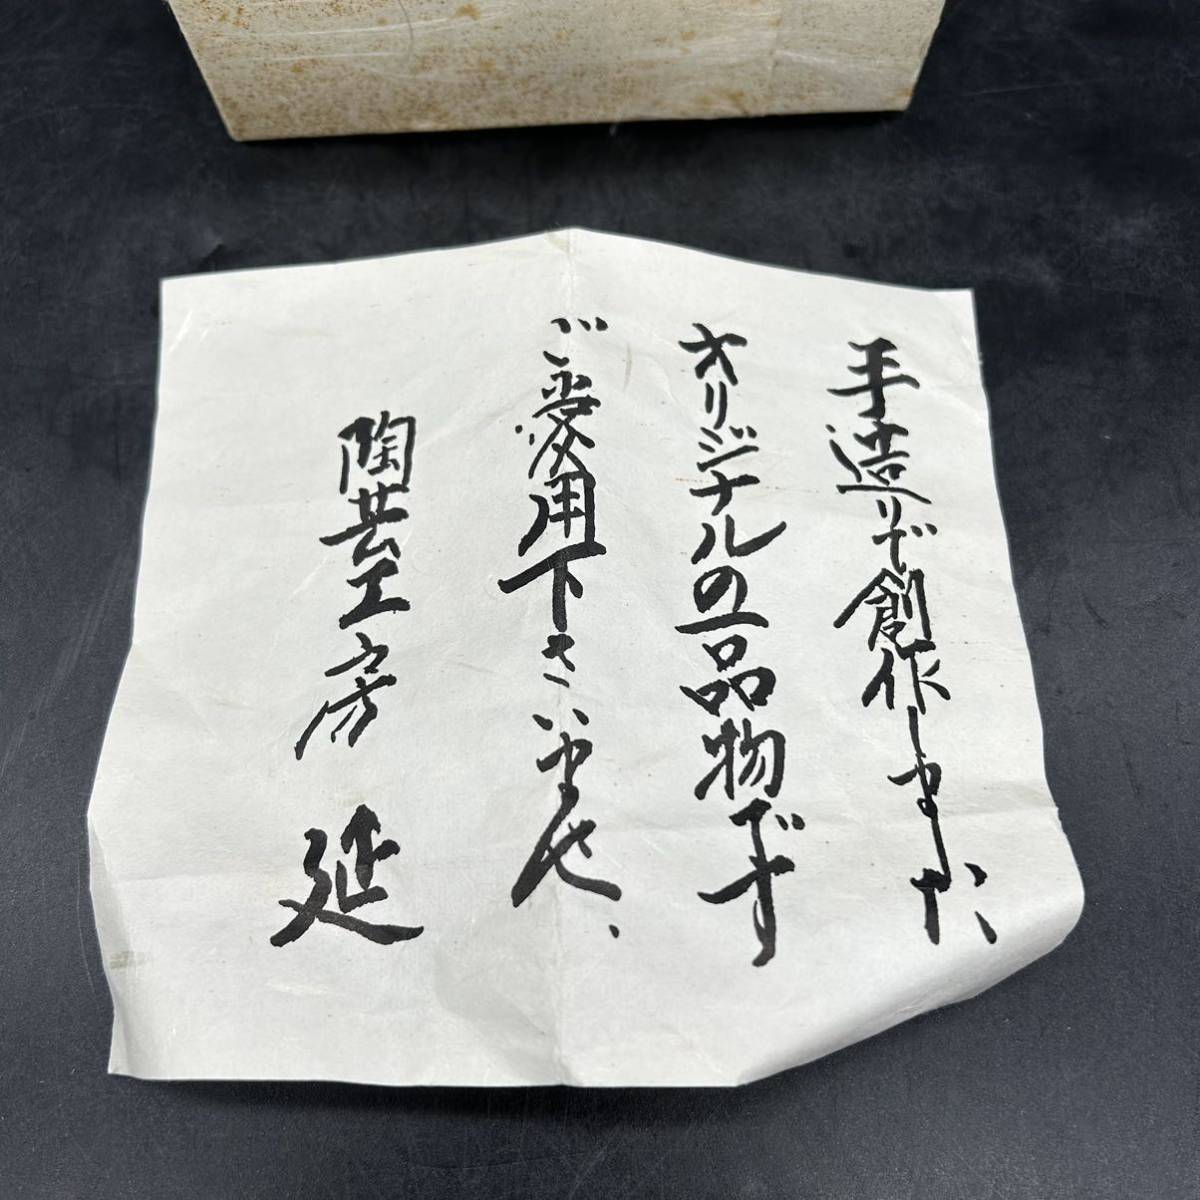 手造りで創作しました
オリジナルの一品物です
ご愛用下さいませ、
陶芸工房 延